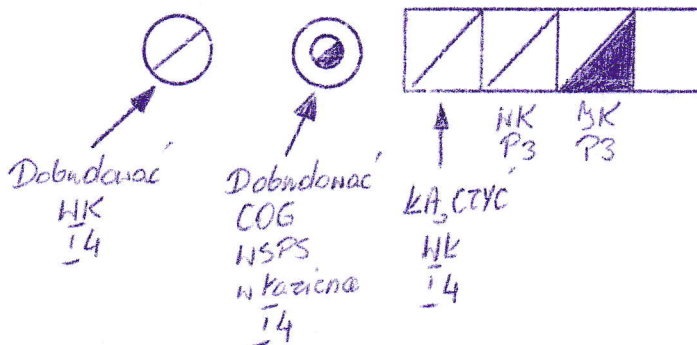 Dobudować
WK
I4
Dobudować
COG
WSPS
w łazience
I4
ŁĄCZYĆ
WK
I4
WK
P3
WK
P3